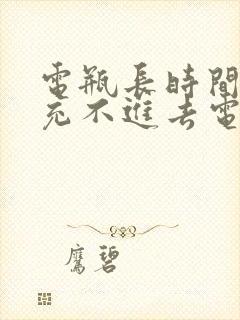 電瓶長時間
充不進去電
鷹碧